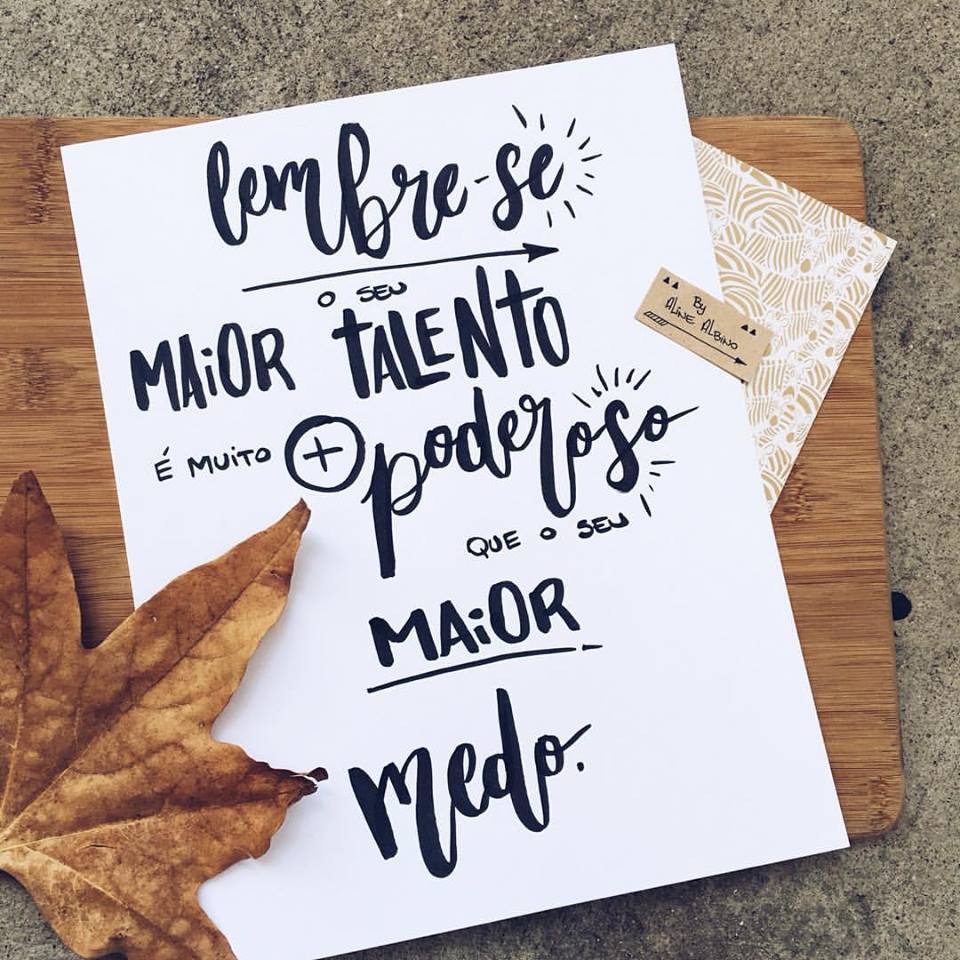 lembre-se
O SEU
MAiOR TALENTO
É MUITO + poderoso
QUE O SEU
MAiOR
medo.
By
ALINE ALBINO